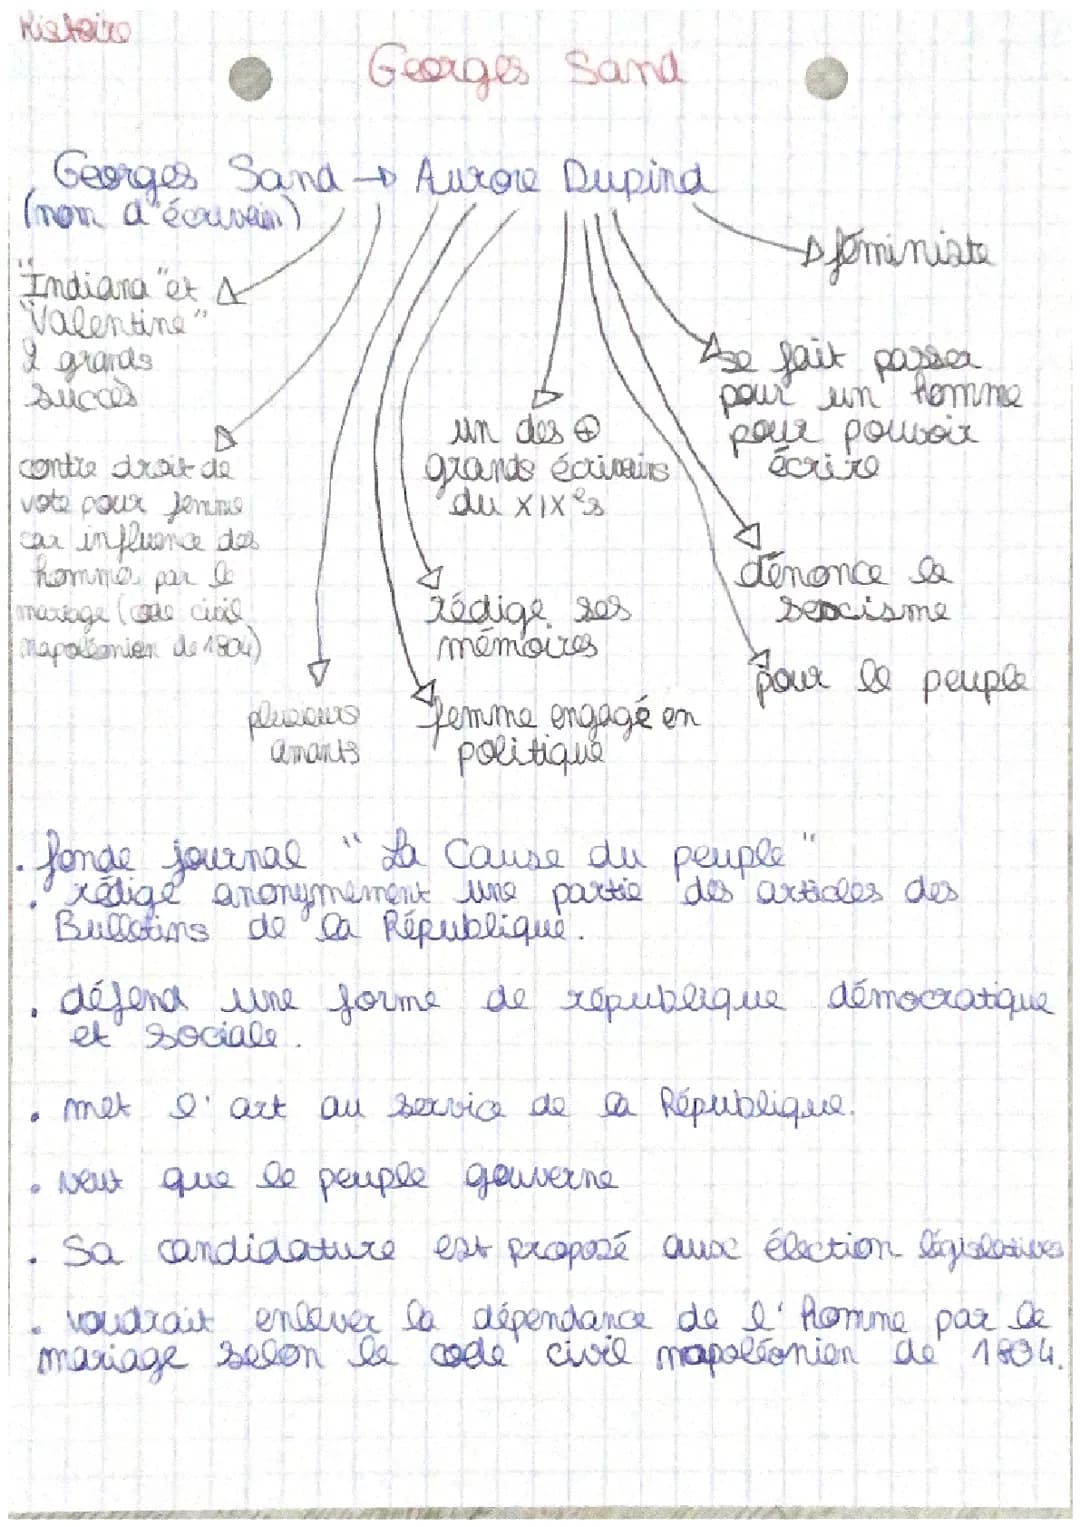 Histoire
Georges Sand
Georges Sand → Aurore Dupind
(nom d'écrivain)
féministe
"Indiana" et
"Valentine"
2 grands
succès
se fait passer
pour un homme
pour pouvoir
écrire
un des ⊕
grands écrivains
du XIXe s
contre droit de
vote pour femme
car influence des
homme par le
mariage (code civil
napoléonien de 1804)
dénonce le
sexcisme
rédige ses
mémoires
pour le peuple
plusieurs
amants
femme engagé en
politique
. fonde journal "La Cause du peuple"
. rédige anonymement une partie des articles des
Bulletins de la République.
. défend une forme de république démocratique
et sociale.
. met l'art au service de la République.
. veut que le peuple gouverne
. Sa candidature est proposé aux élection législatives
. voudrait enlever la dépendance de l'homme par le
mariage selon le code civil napoléonien de 1804.